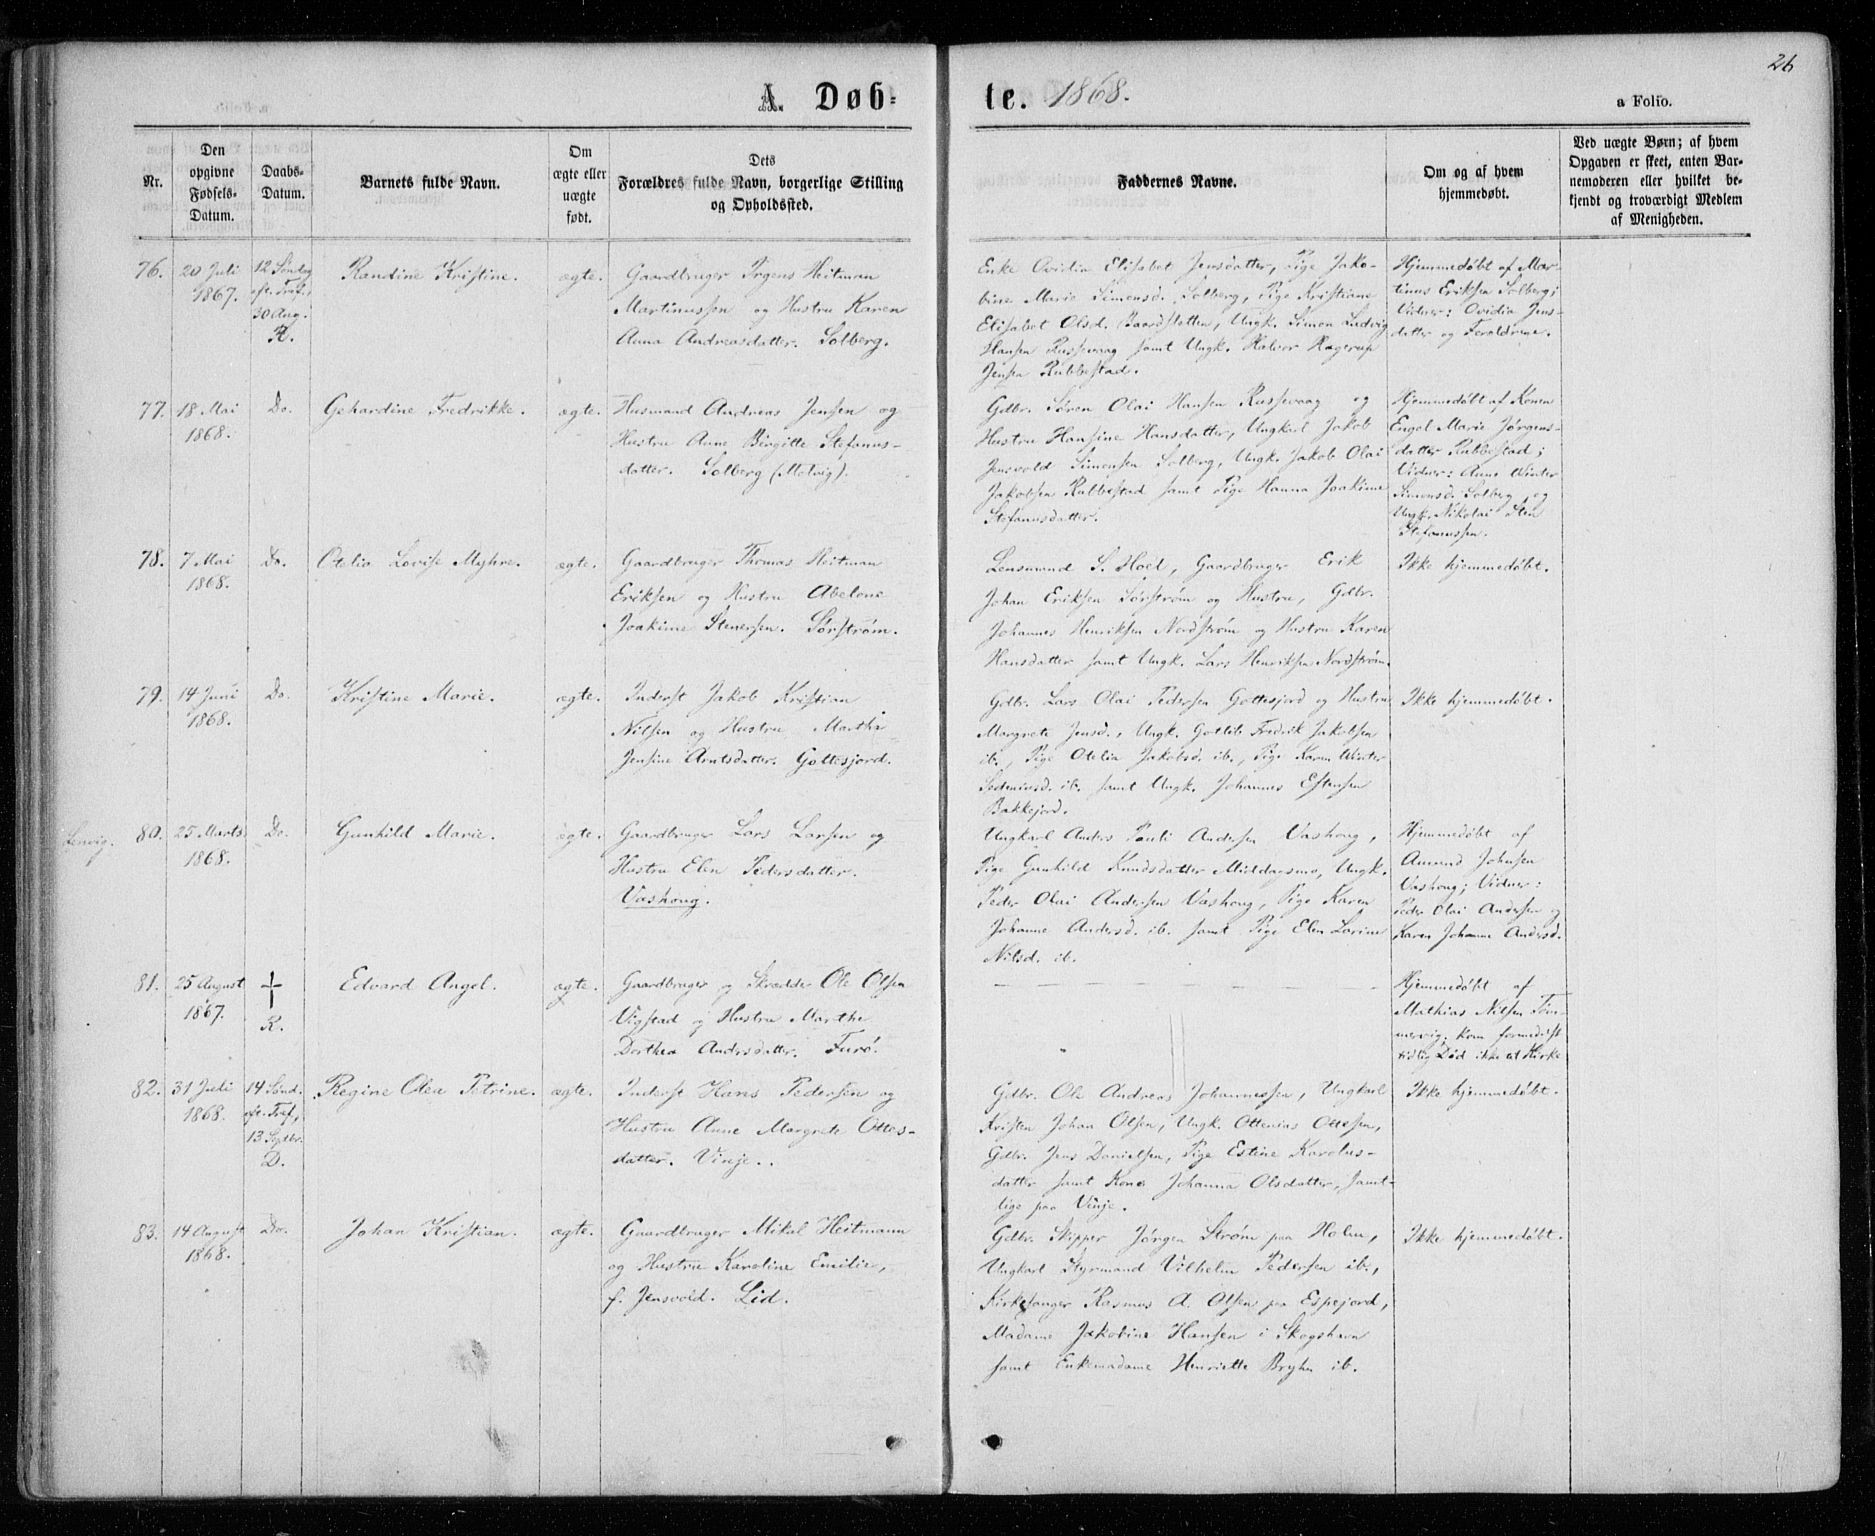 26
A. Døb-
te. 1868.
a Folio.
Nr.
Den opgivne Fødsels-Datum.
Daabs-Datum.
Barnets fulde Navn.
Om ægte eller uægte født.
Dets Forældres fulde Navn, borgerlige Stilling og Opholdssted.
Faddernes Navne.
Om og af hvem hjemmedøbt.
Ved uægte Børn; af hvem Opgaven er skeet, enten Barnemoderen eller hvilket bekjendt og troværdigt Medlem af Menigheden.
76.
20 Juli
1867.
12 Søndag
eft. Tref.
30 Aug.
R.
Randine Kristine.
ægte.
Gaardbruger Irgens Heitman
Martinussen og Hustru Karen
Anna Andreasdatter. Solberg.
Enke Ovidia Elisabet Jensdatter, Pige Jako-
bine Marie Simonsd. Solberg, Pige Kristiane
Elisabet Olsd. Baardslatten, Ungk. Simon Ludvig
Hansen Russevaag samt Ungk. Halvor Hagerup
Jensen Rubbestad.
Hjemmedøbt af Mar-
tinus Eriksen Solberg;
Vidner: Ovidia Jens-
datter og Foreldrene.
77.
18 Mai
1868.
Do.
Gehardine Fredrikke.
ægte.
Husmand Andreas Jensen og
Hustru Anne Birgitte Stefanus-
datter. Solberg (Molvig).
Gdbr. Søren Olai Hansen Russevaag og
Hustru Hansine Hansdatter, Ungkarl Jakob
Jensvold Simonsen Solberg, Ungk. Jakob Olai
Jakobsen Rubbestad samt Pige Hanna Joakime
Stefanusdatter.
Hjemmedøbt af Konen
Engel Marie Jørgens-
datter Rubbestad;
Vidner: Anne Winter
Simonsd. Solberg og
Ungk. Nikolai Sten
Stefanussen.
78.
7 Mai
1868.
Do.
Otelie Lovise Myhre.
ægte.
Gaardbruger Thomas Heitman
Eriksen og Hustru Abelone
Joakime Stenersen. Sørstrøm.
Lensmand S. Hoel, Gaardbruger Erik
Johan Eriksen Sørstrøm og Hustru, Gdbr.
Johannes Henriksen Nordstrøm og Hustru Karen
Hansdatter samt Ungk. Lars Henriksen Nordstrøm.
Ikke hjemmedøbt.
79.
14 Juni
1868.
Do.
Kristine Marie.
ægte.
Inderst Jakob Kristian
Nilsen og Hustru Martha
Jensine Arntsdatter. Gottesjord.
Gdbr. Lars Olai Pedersen Gottesjord og Hustru
Margrete Jensd., Ungk. Gotlib Fredrik Jakobsen
ib., Pige Otelia Jakobsd. ib., Pige Karen Winter
Sedeniusd. ib. samt Ungk. Johannes Estensen
Bakkejord.
Ikke hjemmedøbt.
Lenvig.
80.
25 Marts
1868.
Do.
Gunhild Marie.
ægte.
Gaardbruger Lars Larsen og
Hustru Elen Pedersdatter.
Vashoug.
Ungkarl Anders Pauli Andersen Vashoug,
Pige Gunhild Knudsdatter Middagsmo, Ungk.
Peder Olai Andersen Vashoug, Pige Karen
Johanne Andersd. ib. samt Pige Elen Larine
Nilsd. ib.
Hjemmedøbt af
Amund Johnsen
Vashoug; Vidner:
Peder Olai Andersen og
Karen Johanne Andersd.
81.
25 August
1867.
R.
Edvard Angel.
ægte.
Gaardbruger og Skrædder Ole Olsen
Vigstad og Hustru Marthe
Dorthea Andersdatter. Furø.
Hjemmedøbt af
Mathias Nilsen Tøm-
mervig; kom formedelst
tidlig Død ikke at Kirke
82.
31 Juli
1868.
14 Sønd.
eft. Tref,
13 Septbr.
D.
Regine Olea Petrine.
ægte.
Inderst Hans Pedersen og
Hustru Anne Margrete Ottes-
datter. Vinje.
Gdbr. Ole Andreas Johannessen, Ungkarl
Kristen Johan Olsen, Ungk. Ottenius Ottesen,
Gdbr. Jens Danielsen, Pige Estine Karolus-
datter samt Kone Johanna Olsdatter, samt-
lige paa Vinje.
Ikke hjemmedøbt.
83.
14 August
1868.
Do.
Johan Kristian.
ægte.
Gaardbruger Mikal Heitmann
og Hustru Karoline Emilie,
f. Jensvold. Lid.
Gdbr. Skipper Jørgen Strøm paa Holm,
Ungkarl Styrmand Vilhelm Pedersen ib.,
Kirkesanger Rasmus A. Olsen paa Espejord,
Madame Jakobine Hansen i Skogshavn
samt Enkemadame Henriette Bryhn ib.
Ikke hjemmedøbt.